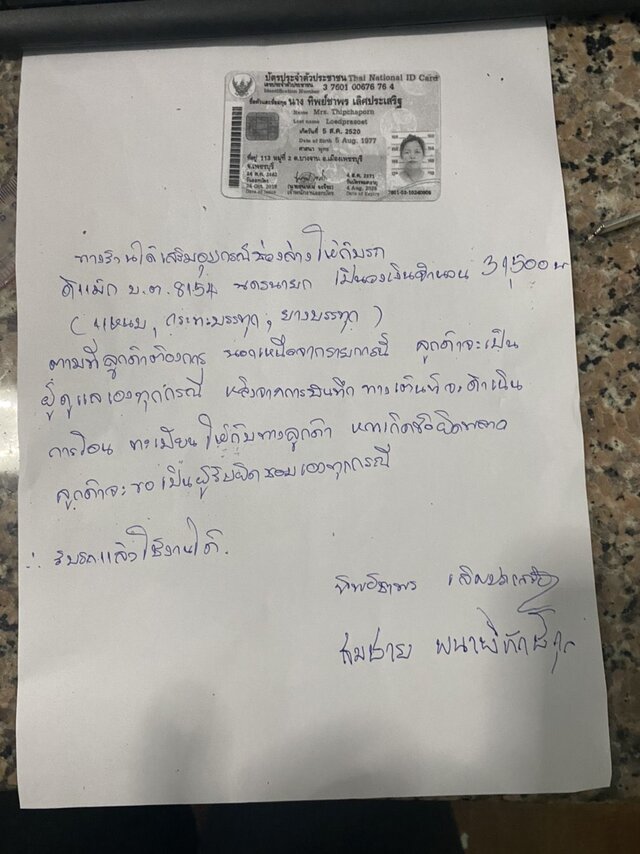 บัตรประจำตัวประชาชน Thai National ID Card
เลขประจำตัวประชาชน 3 7601 00676 76 4
Identification Number
ชื่อตัวและชื่อสกุล นาง ทิพย์ชาพร เลิศประเสริฐ
Name Mrs. Thipchaporn
Last name Loedprasoet
เกิดวันที่ 5 ส.ค. 2520
Date of Birth 5 Aug. 1977
ศาสนา พุทธ
ที่อยู่ 113 หมู่ที่ 2 ต.บางจาน อ.เมืองเพชรบุรี
จ.เพชรบุรี
วันออกบัตร
Date of Issue
เจ้าพนักงานออกบัตร
4 ส.ค. 2571
วันบัตรหมดอายุ
4 Aug. 2028
Date of Expiry
ทางร้านได้เสริมอุปกรณ์ช่วงล่าง ให้กับรถ
ดีแม็ก บ.ต. 8154 นครนายก เป็นวงเงินจำนวน 31,500 บ
(แหนบ, กระทะบรรทุก, ยางบรรทุก)
ตามที่ลูกค้าต้องการ นอกเหนือจากรายการนี้ ลูกค้าจะเป็น
ผู้ดูแลเองทุกกรณี หลังจากการบันทึก ทางเต้นท์จะดำเนิน
การโอน ทะเบียน ให้กับทางลูกค้า หากเกิดข้อผิดพลาด
ลูกค้าจะขอเป็นผู้รับผิดชอบเองทุกกรณี
∴ รับรถแล้วใช้งานได้.
ทิพย์ชาพร เลิศประเสริฐ